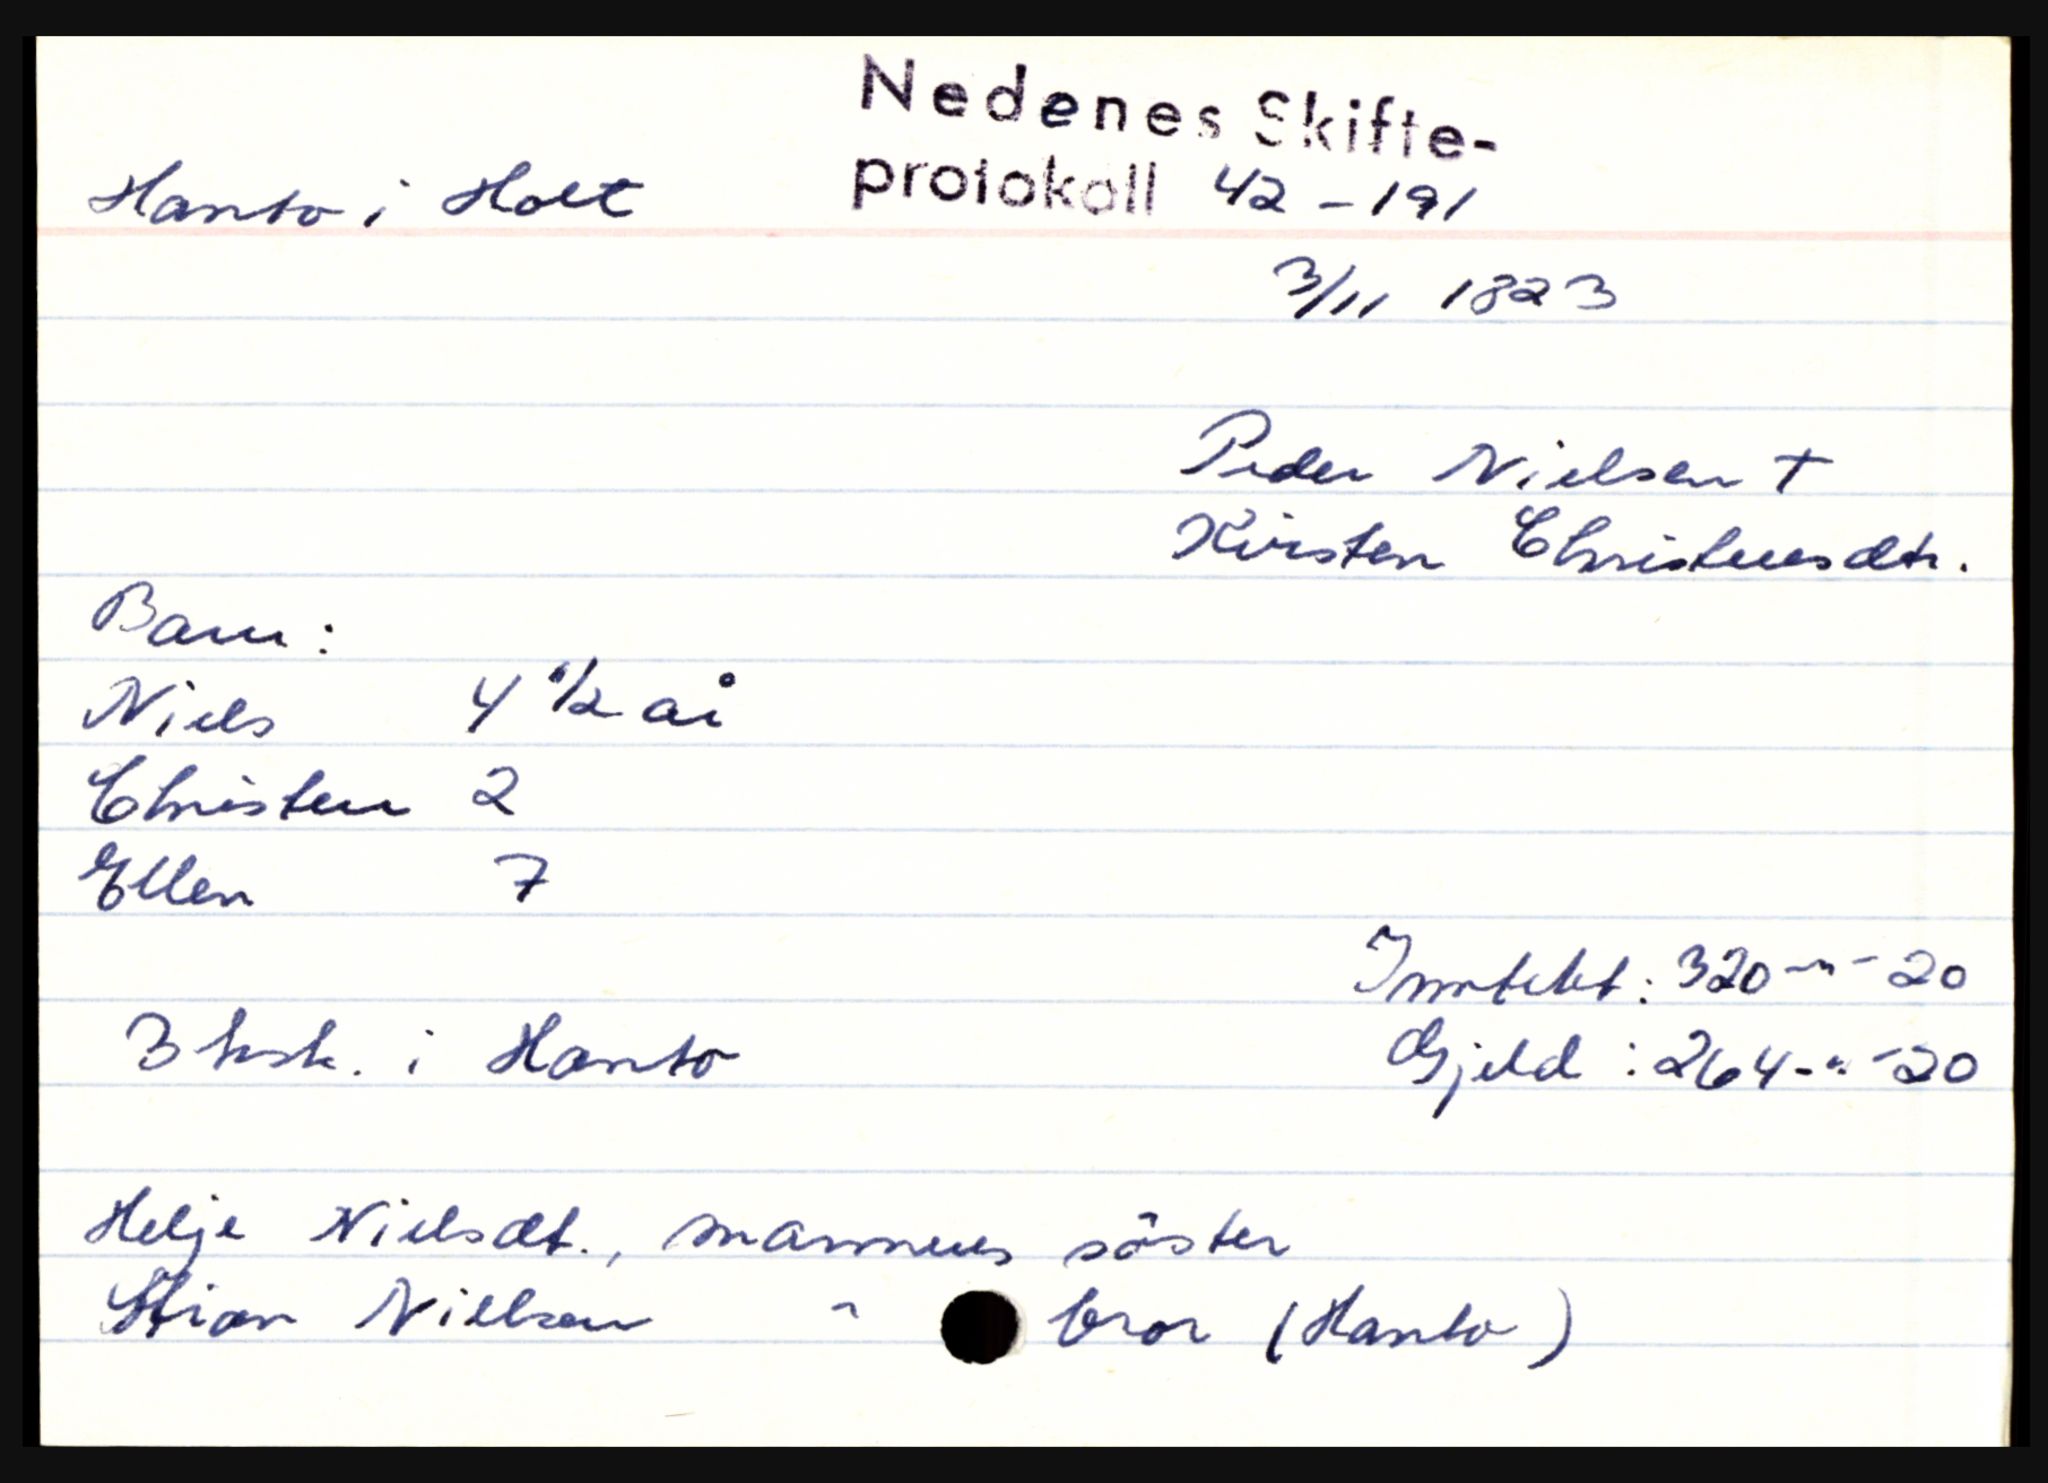 Nedenes Skifte-
Hanto i Holt protokoll 42 - 191
3/11 1823
Peder Nielsen †
Kirsten Christensdtr.
Barn:
Niels 4 1/2 år
Christen 2
Ellen 7
Inntekt: 320-"-20
3 hsk. i Hanto Gjeld: 264-"-20
Helje Nielsdt., mannens söster
Stian Nielsen " bror (Hanto)